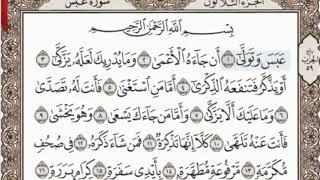 الجزء الثلاثون سورة عبس
بِسْمِ اللَّهِ الرَّحْمَٰنِ الرَّحِيمِ
عَبَسَ وَتَوَلَّىٰ ١ أَن جَاءَهُ الْأَعْمَىٰ ٢ وَمَا يُدْرِيكَ لَعَلَّهُ يَزَّكَّىٰ ٣
أَوْ يَذَّكَّرُ فَتَنفَعَهُ الذِّكْرَىٰ ٤ أَمَّا مَنِ اسْتَغْنَىٰ ٥ فَأَنتَ لَهُ تَصَدَّىٰ
٦ وَمَا عَلَيْكَ أَلَّا يَزَّكَّىٰ ٧ وَأَمَّا مَن جَاءَكَ يَسْعَىٰ ٨ وَهُوَ يَخْشَىٰ ٩
فَأَنتَ عَنْهُ تَلَهَّىٰ ١٠ كَلَّا إِنَّهَا تَذْكِرَةٌ ١١ فَمَن شَاءَ ذَكَرَهُ ١٢ فِي صُحُفٍ
مُّكَرَّمَةٍ ١٣ مَّرْفُوعَةٍ مُّطَهَّرَةٍ ١٤ بِأَيْدِي سَفَرَةٍ ١٥ كِرَامٍ بَرَرَةٍ ١٦